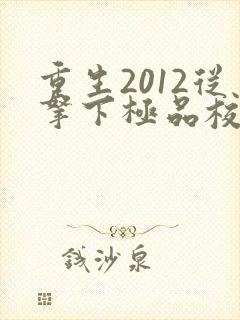 重生2012從
拏下極品校
錢沙泉